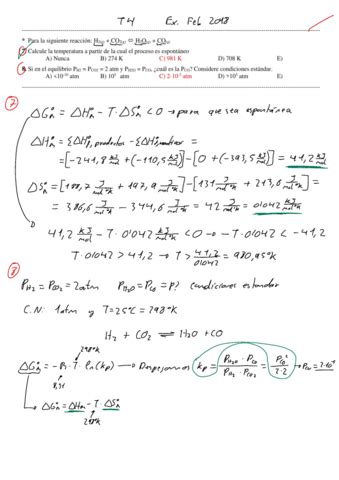 T4 Ex. Feb 2018
* Para la siguiente reacción: H₂(g) + CO₂(g) ⇔ H₂O(g) + CO(g)
7. Calcule la temperatura a partir de la cual el proceso es espontáneo
A) Nunca B) 274 K C) 981 K D) 708 K E)
8. Si en el equilibrio P_H2 = P_CO2 = 2 atm y P_H2O = P_CO, ¿cuál es la P_CO? Considere condiciones estándar.
A) <10⁻¹⁰ atm B) 10⁵ atm C) 2·10⁻² atm D) >10⁵ atm E)
⑦ ΔG°ᵣ = ΔH°ᵣ - T·ΔS°ᵣ < 0 → para que sea espontánea
ΔH°ᵣ = ΣΔH°f, productos - ΣΔH°f, reactivos =
= [-241,8 kJ/mol + (-110,5 kJ/mol)] - [0 + (-393,5 kJ/mol)] = 41,2 kJ/mol
ΔS°ᵣ = [188,7 J/mol·°K + 197,9 J/mol·°K] - [131 J/mol·°K + 213,6 J/mol·°K] =
= 386,6 J/mol·°K - 344,6 J/mol·°K = 42 J/mol·°K = 0'042 kJ/mol·°K
41,2 kJ/mol - T·0'042 kJ/mol·°K < 0 → -T·0'042 < -41,2
T·0'042 > 41,2 → T > 41,2/0'042 = 980,95°K
⑧
P_H2 = P_CO2 = 2atm P_H2O = P_CO = P? condiciones estandar
C.N: 1atm y T=25°C = 298°K
H₂ + CO₂ ⇌ H₂O + CO
298°K
ΔG°ᵣ = -R·T·ln(kp) → Despejamos kp = P_H2O · P_CO / P_H2 · P_CO2 = P_CO² / 2·2 → P_CO = 2·10⁻²
8,31
ΔG°ᵣ = ΔHᵣ - T·ΔS°ᵣ
298°K